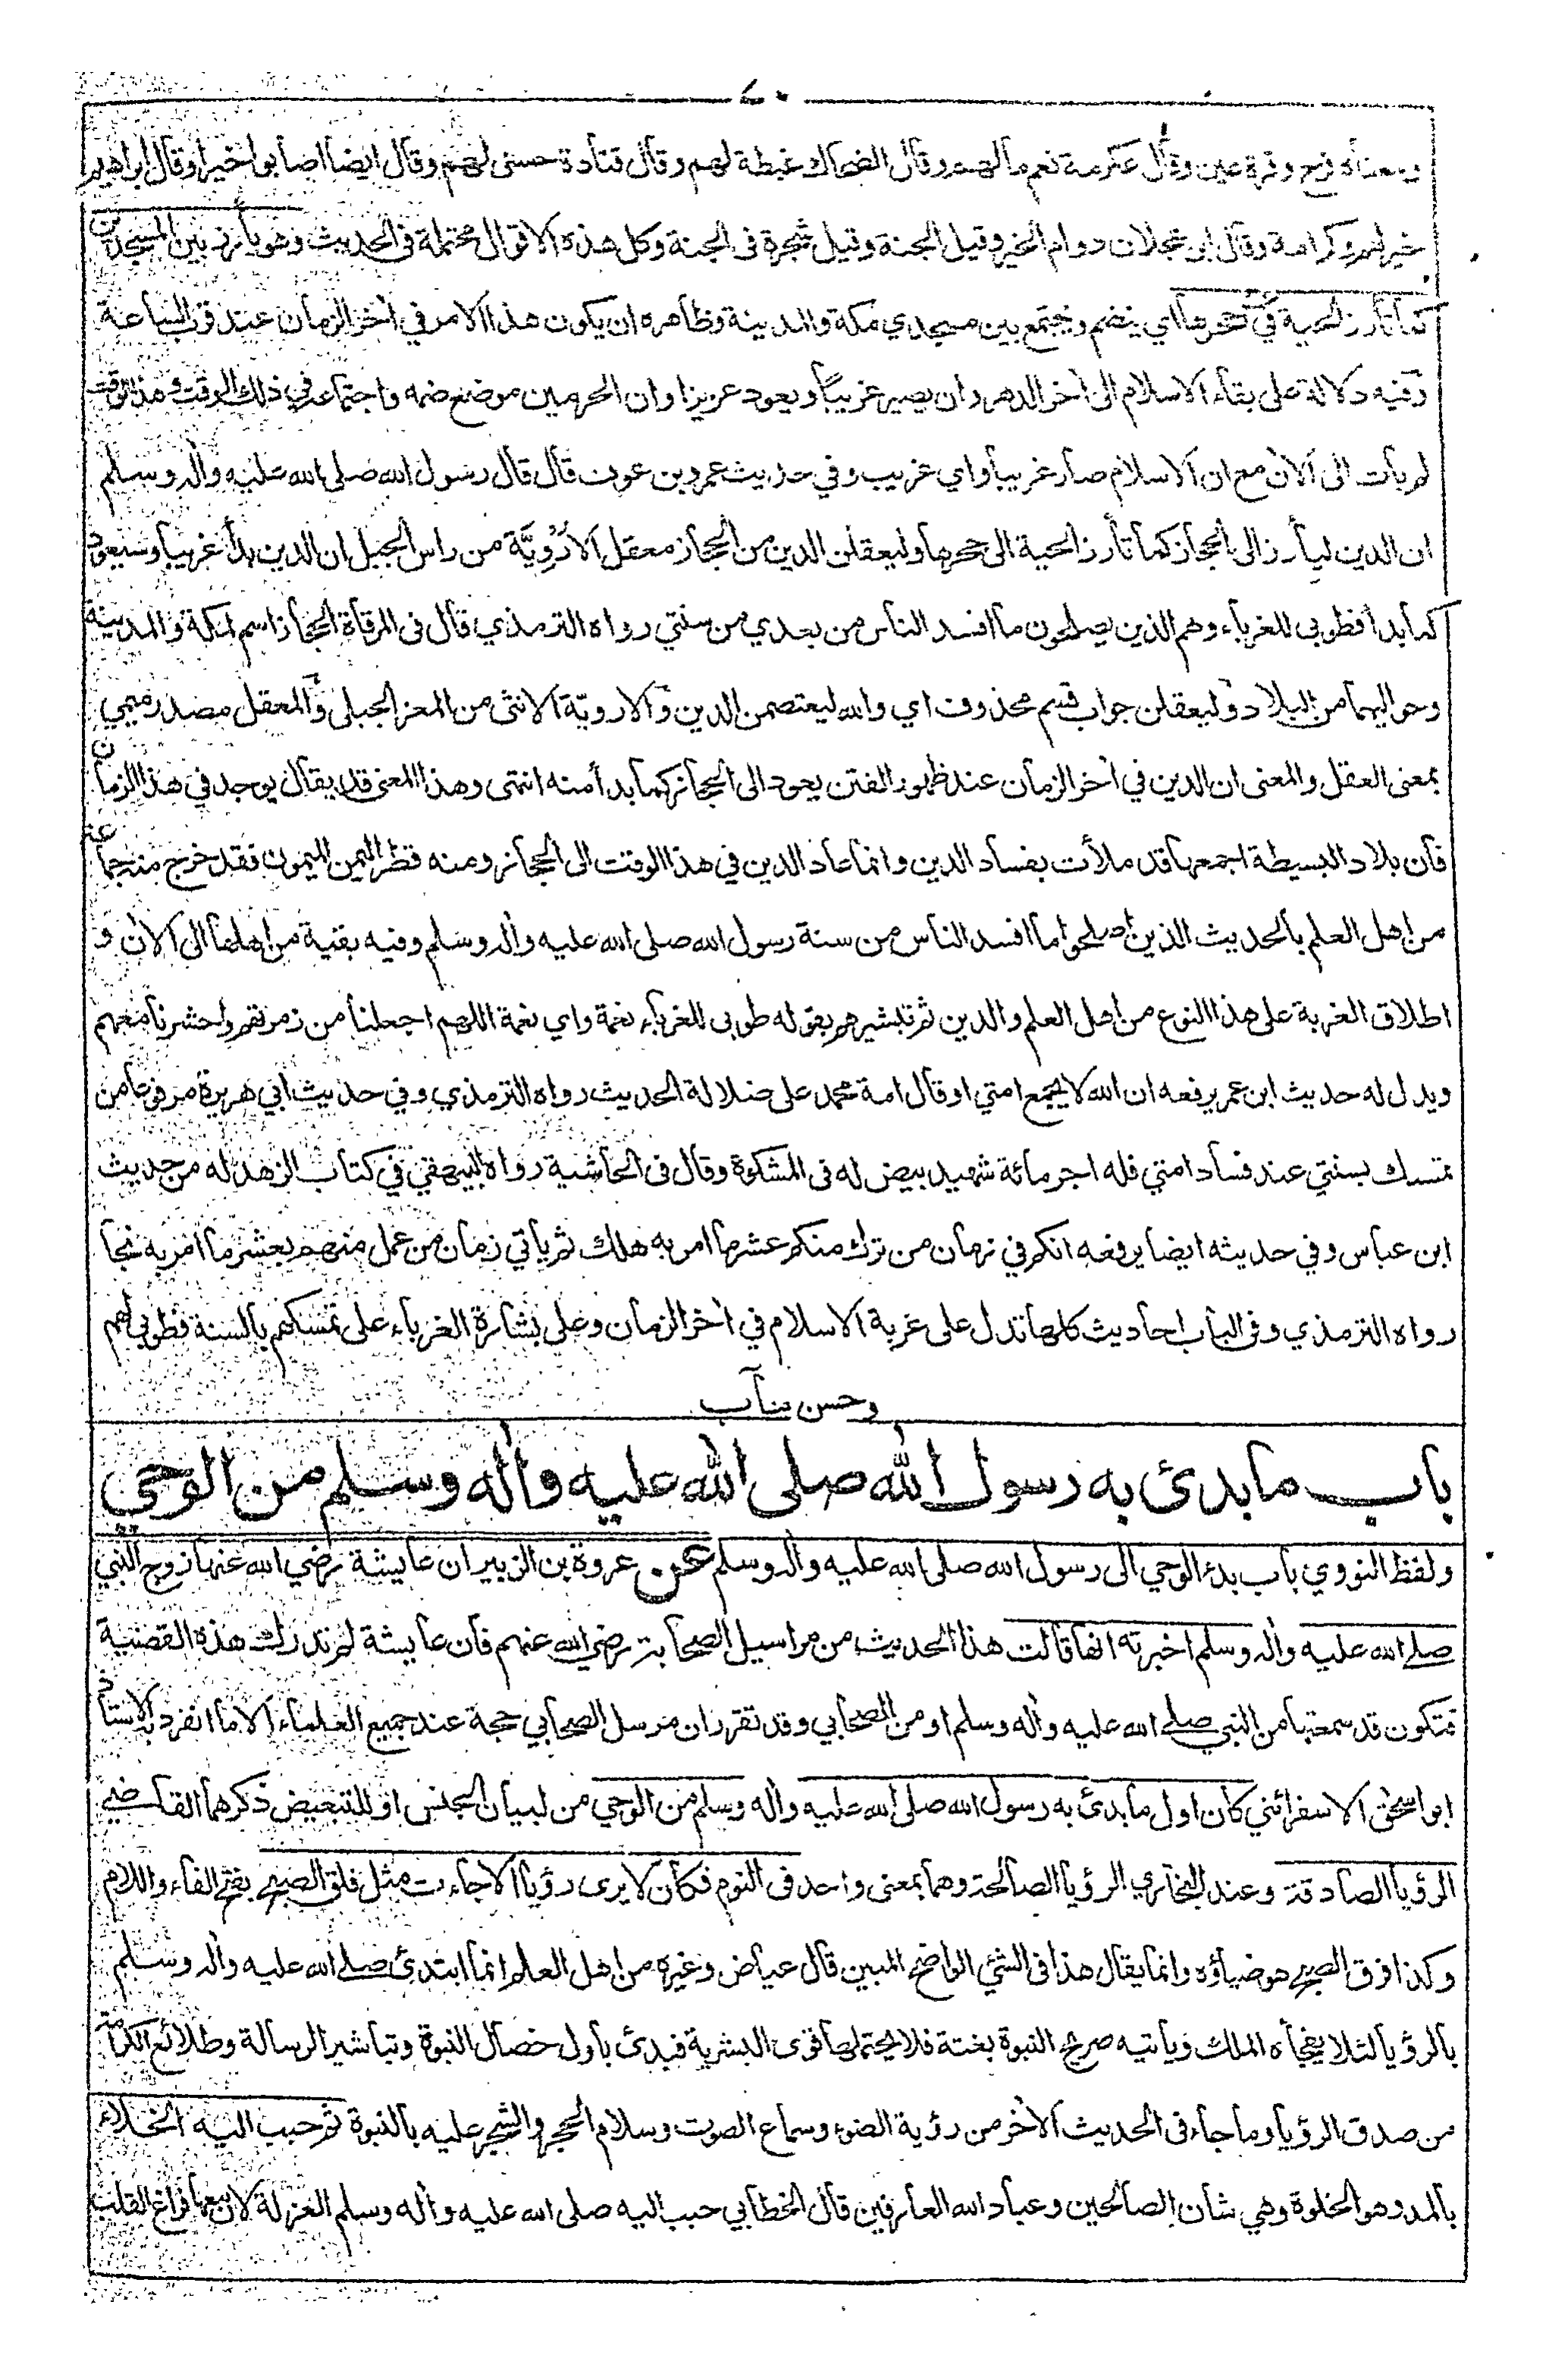 ومعناه فرح وقرة عين وقال عكرمة نعم مالهم وقال الضحاك غبطة لهم وقال قتادة حسنى لهم وقال ايضا اصابوا خيرا وقال ابراهيم
خير لهم وكرامة وقال ابن عجلان دوام الخير وقيل الجنة وقيل شجرة في الجنة وكل هذه الاقوال محتملة في الحديث وهو يأرز بين المسجدين
كما تأرز الحية في جحرها اي ينضم ويجتمع بين مسجدي مكة والمدينة وظاهره ان يكون هذا الامر في اخر الزمان عند قرب الساعة
وفيه دلالة على بقاء الاسلام الى اخر الدهر وان يصير غريبا ويعود عزيزا وان الحرمين موضع ضمه واجتماعه في ذلك الوقت وهذا الوقت
لم يأت الى الان مع ان الاسلام صار غريبا واي غريب وفي حديث عمرو بن عوف قال قال رسول الله صلى الله عليه واله وسلم
ان الدين ليأرز الى الحجاز كما تأرز الحية الى جحرها وليعقلن الدين من الحجاز معقل الاروية من راس الجبل ان الدين بدأ غريبا وسيعود
كما بدأ فطوبى للغرباء وهم الذين يصلحون ما افسد الناس من بعدي من سنتي رواه الترمذي قال في المرقاة الحجاز اسم لمكة والمدينة
وحواليهما من البلاد وليعقلن جواب قسم محذوف اي والله ليعتصمن الدين والاروية الانثى من المعز الجبلي والمعقل مصدر ميمي
بمعنى العقل والمعنى ان الدين في اخر الزمان عند ظهور الفتن يعود الى الحجاز كما بدأ منه انتهى وهذا المعنى قد يقال يوجد في هذا الزمان
فان بلاد البسيطة اجمعها قد ملأت بفساد الدين وانما عاد الدين في هذا الوقت الى الحجاز ومنه قطر اليمن الميمون فقد خرج منه جماعة
من اهل العلم بالحديث الذين اصلحوا ما افسد الناس من سنة رسول الله صلى الله عليه واله وسلم وفيه بقية من اهلها الى الان و
اطلاق الغربة على هذا النوع من اهل العلم والدين ثم تبشيرهم بقوله طوبى للغرباء نعمة واي نعمة اللهم اجعلنا من زمرتهم واحشرنا معهم
ويدل له حديث ابن عمر يرفعه ان الله لا يجمع امتي او قال امة محمد على ضلالة الحديث رواه الترمذي وفي حديث ابي هريرة مرفوعا من
تمسك بسنتي عند فساد امتي فله اجر مائة شهيد بيض له في المشكوة وقال في الحاشية رواه البيهقي في كتاب الزهد له من حديث
ابن عباس وفي حديثه ايضا يرفعه انكم في زمان من ترك منكم عشر ما امر به هلك ثم يأتي زمان من عمل منهم بعشر ما امر به نجا
رواه الترمذي وفي الباب احاديث كلها تدل على غربة الاسلام في اخر الزمان وعلى بشارة الغرباء على تمسكهم بالسنة فطوبى لهم
وحسن مآب
باب ما بدئ به رسول الله صلى الله عليه واله وسلم من الوحي
ولفظ النووي باب بدء الوحي الى رسول الله صلى الله عليه واله وسلم عن عروة بن الزبير ان عايشة رضي الله عنها زوج النبي
صلى الله عليه واله وسلم اخبرته انها قالت هذا الحديث من مراسيل الصحابة رضي الله عنهم فان عايشة لم تدرك هذه القضية
فتكون قد سمعتها من النبي صلى الله عليه واله وسلم او من الصحابي وقد تقرر ان مرسل الصحابي حجة عند جميع العلماء الا ما انفرد به الاستاذ
ابو اسحق الاسفرائني كان اول ما بدئ به رسول الله صلى الله عليه واله وسلم من الوحي من لبيان الجنس او للتبعيض ذكرهما القاضي
الرؤيا الصادقة وعند البخاري الرؤيا الصالحة وهما بمعنى واحد في النوم فكان لا يرى رؤيا الا جاءت مثل فلق الصبح بفتح الفاء واللام
وكذا فرق الصبح هو ضياؤه وانما يقال هذا في الشئ الواضح المبين قال عياض وغيره من اهل العلم انما ابتدئ صلى الله عليه واله وسلم
بالرؤيا لئلا يفجأه الملك ويأتيه صريح النبوة بغتة فلا يحتملها قوى البشرية فبدئ باول خصال النبوة وتباشير الرسالة وطلائع الكرامة
من صدق الرؤيا وما جاء في الحديث الاخر من رؤية الضوء وسماع الصوت وسلام الحجر والشجر عليه بالنبوة ثم حبب اليه الخلاء
بالمد وهو الخلوة وهي شأن الصالحين وعباد الله العارفين قال الخطابي حبب اليه صلى الله عليه واله وسلم العزلة لان معها فراغ القلب